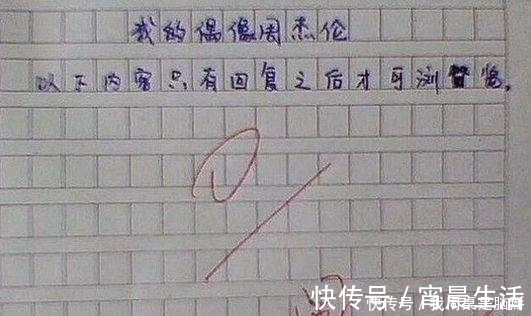 我的偶像周杰伦
以下内容只有回复之后才可浏览。
阅
快传号／宵晨生活